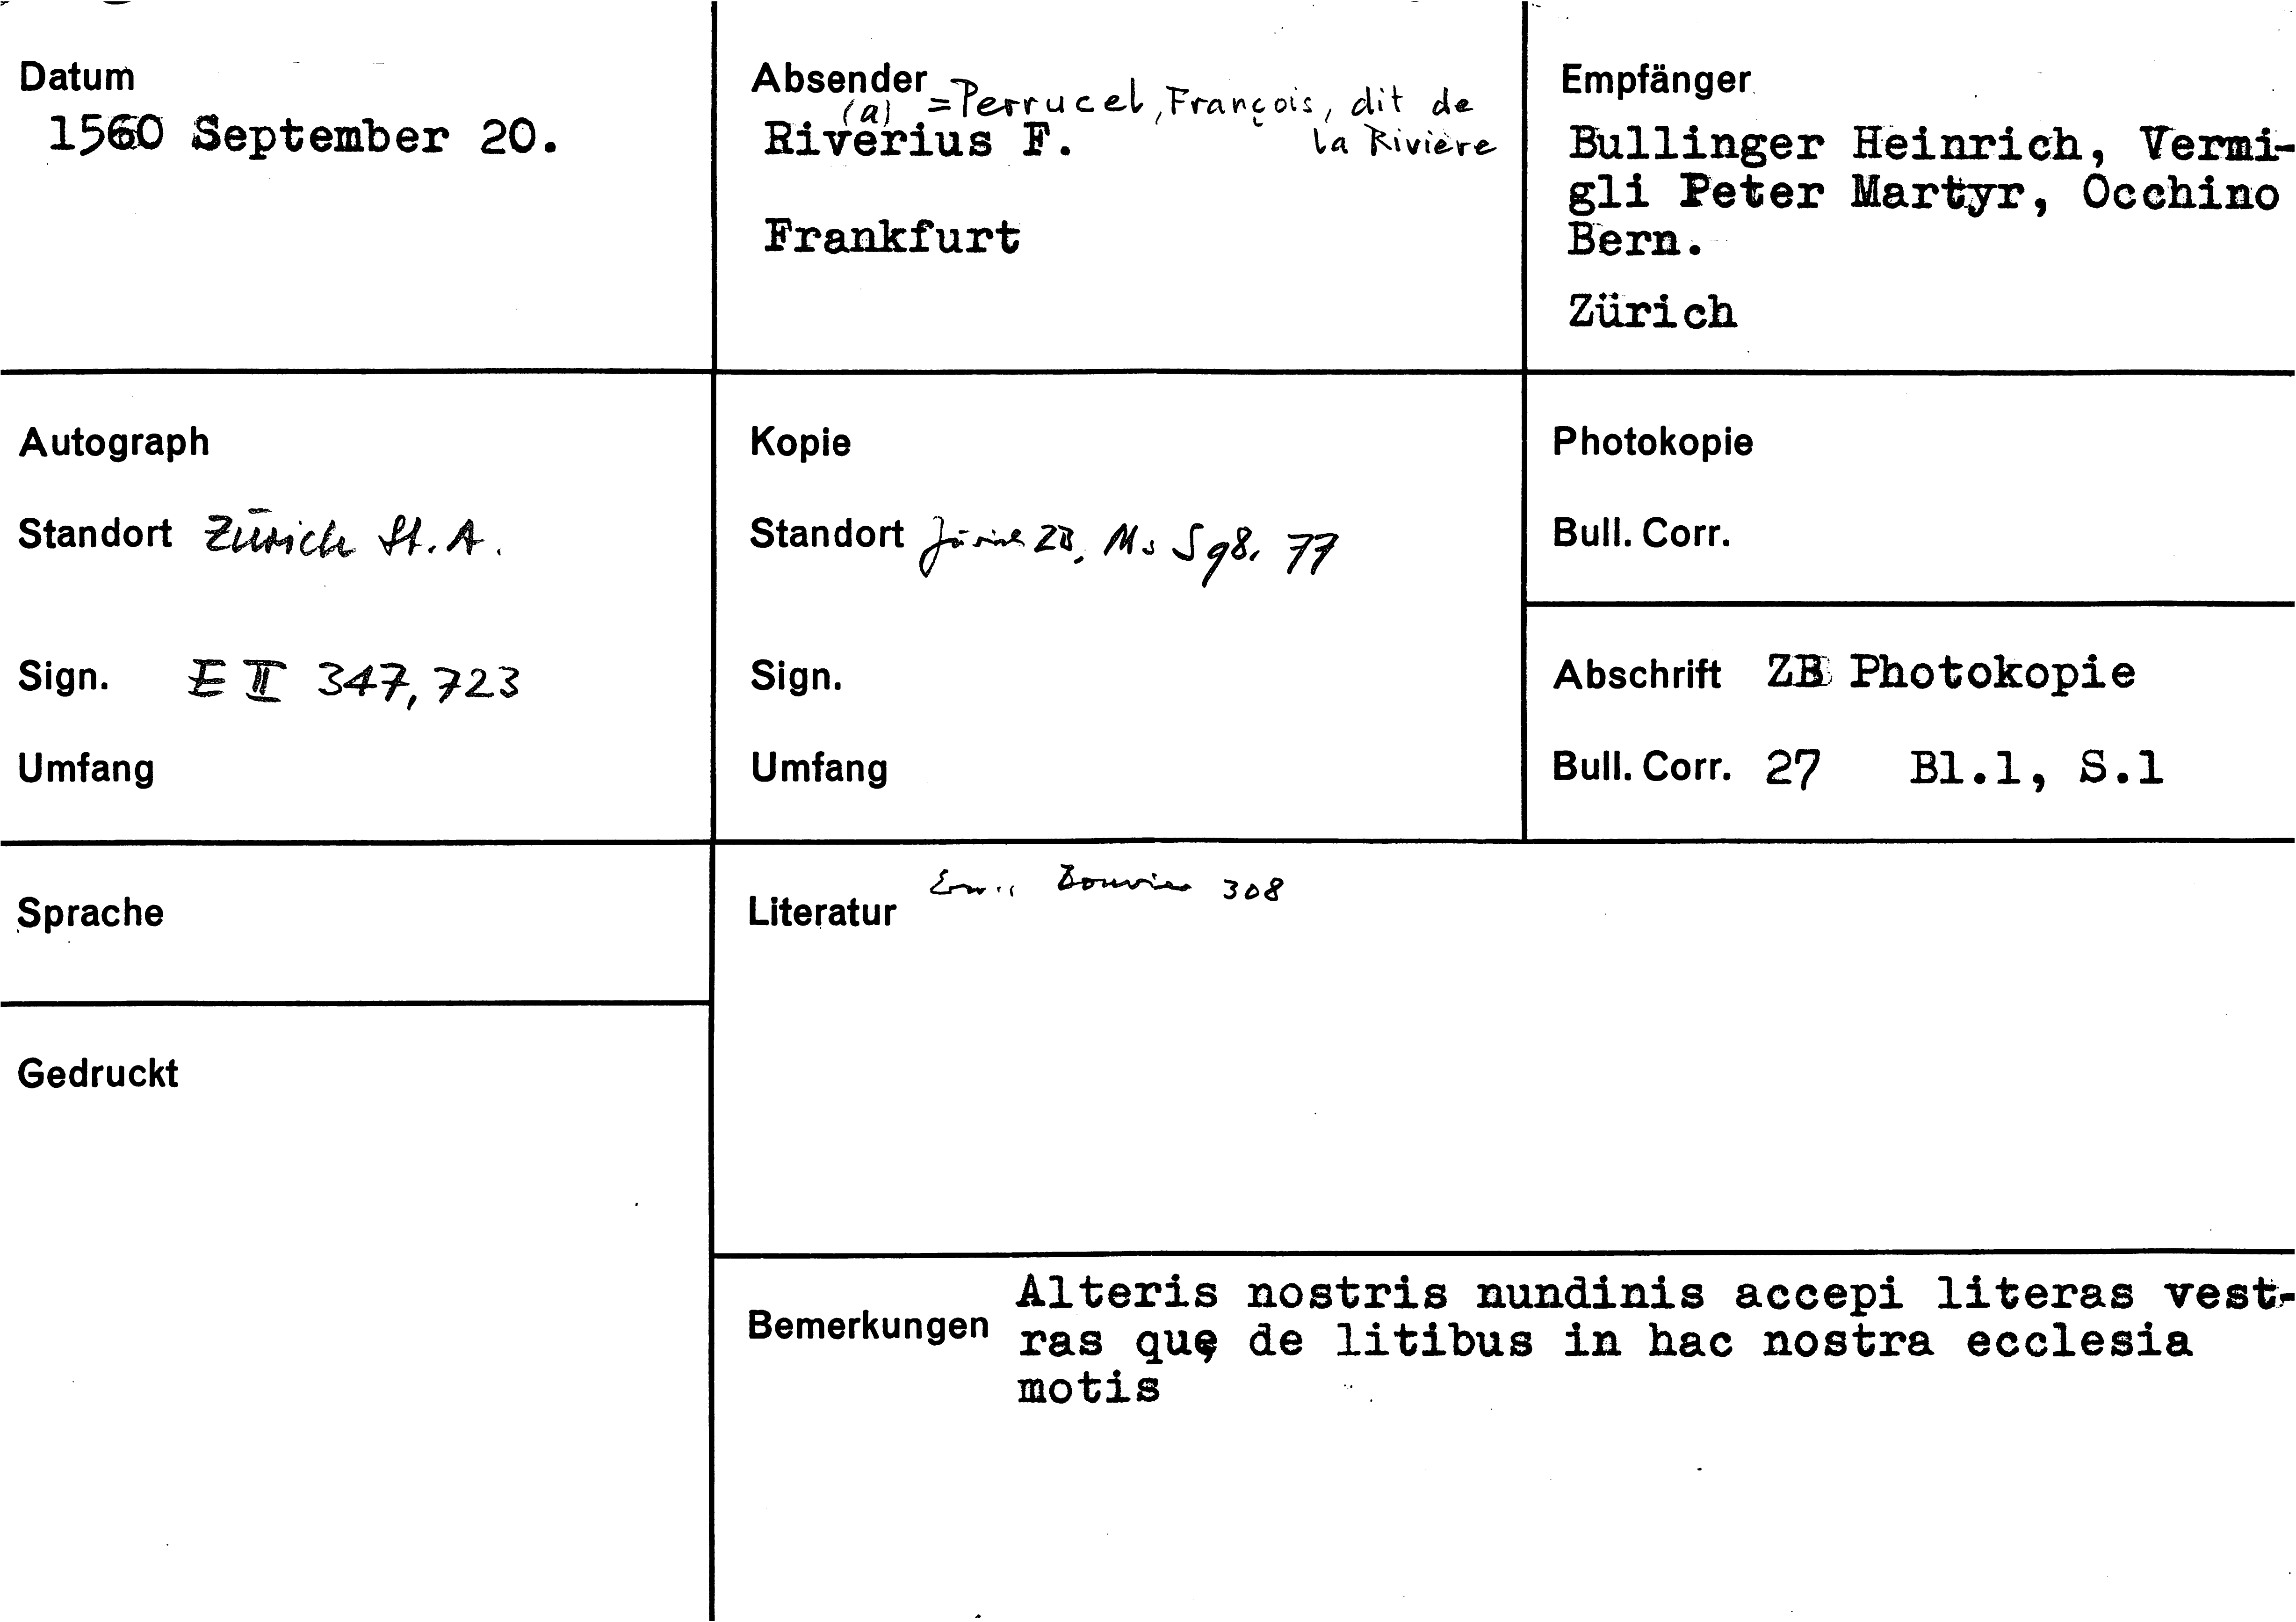 Datum
1560 September 20.
Absender
(a) =Perrucel, François, dit de
la Rivière
Riverius F.
Frankfurt
Empfänger
Bullinger Heinrich, Vermi-
gli Peter Martyr, Occhino
Bern.
Zürich
Autograph
Standort Zürich St. A.
Sign. E II 347, 723
Umfang
Kopie
Standort Zürich ZB, Ms S 98, 77
Sign.
Umfang
Photokopie
Bull. Corr.
Abschrift ZB Photokopie
Bull. Corr. 27 Bl.1, S.1
Sprache
Literatur Bouvier 308
Gedruckt
Bemerkungen
Alteris nostris nundinis accepi literas vest-
ras quę de litibus in hac nostra ecclesia
motis